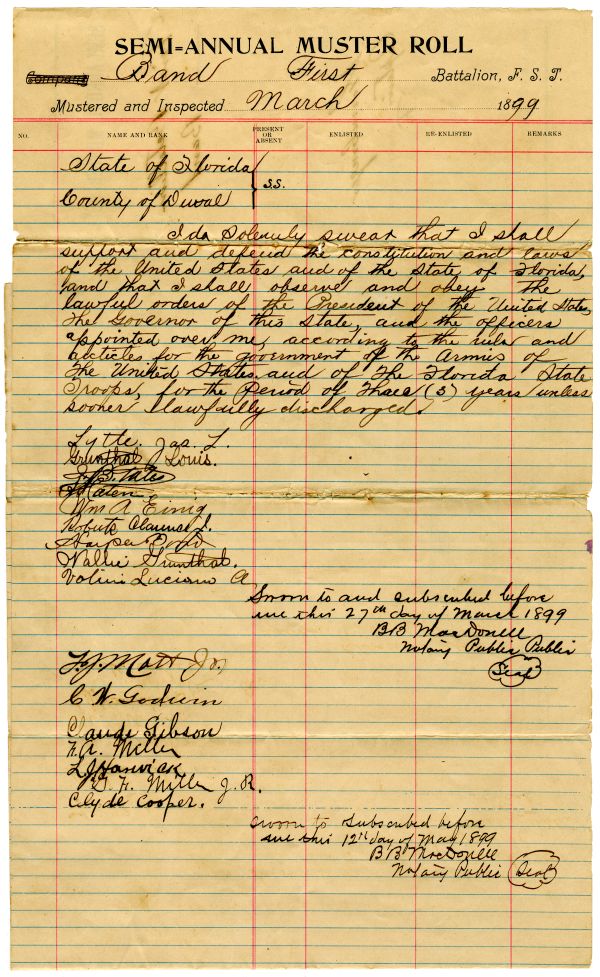 SEMI=ANNUAL MUSTER ROLL
Company Band First Battalion, F. S. T.
Mustered and Inspected March 1899
NO. NAME AND RANK PRESENT OR ABSENT ENLISTED RE-ENLISTED REMARKS
State of Florida
S.S.
County of Duval
I do Solemnly swear that I shall
support and defend the constitution and laws
of the United States and of the State of Florida,
and that I shall observe and obey the
lawful orders of the President of the United States,
the Governor of this State, and the officers
appointed over me, according to the rules and
articles for the government of the Armies of
the United States and of the Florida State
Troops, for the Period of Three (3) years unless
sooner lawfully discharged.
Lytle. Jas. L.
Grunthal Louis.
Wm A Einig
Roberts Clarence L.
Harper
Wallie Grunthal.
Luciano A
Sworn to and subscribed before
me this 27th day of March 1899
B B MacDonell
Notary Public Public
Seal
T. J. Mott Jr.
C W. Godwin
Claude Gibson
F. A. Miller
L J Harwick
G. F. Miller J.R.
Clyde Cooper.
sworn to subscribed before
me this 12th day of May 1899
B B MacDonell
Notary Public Seal